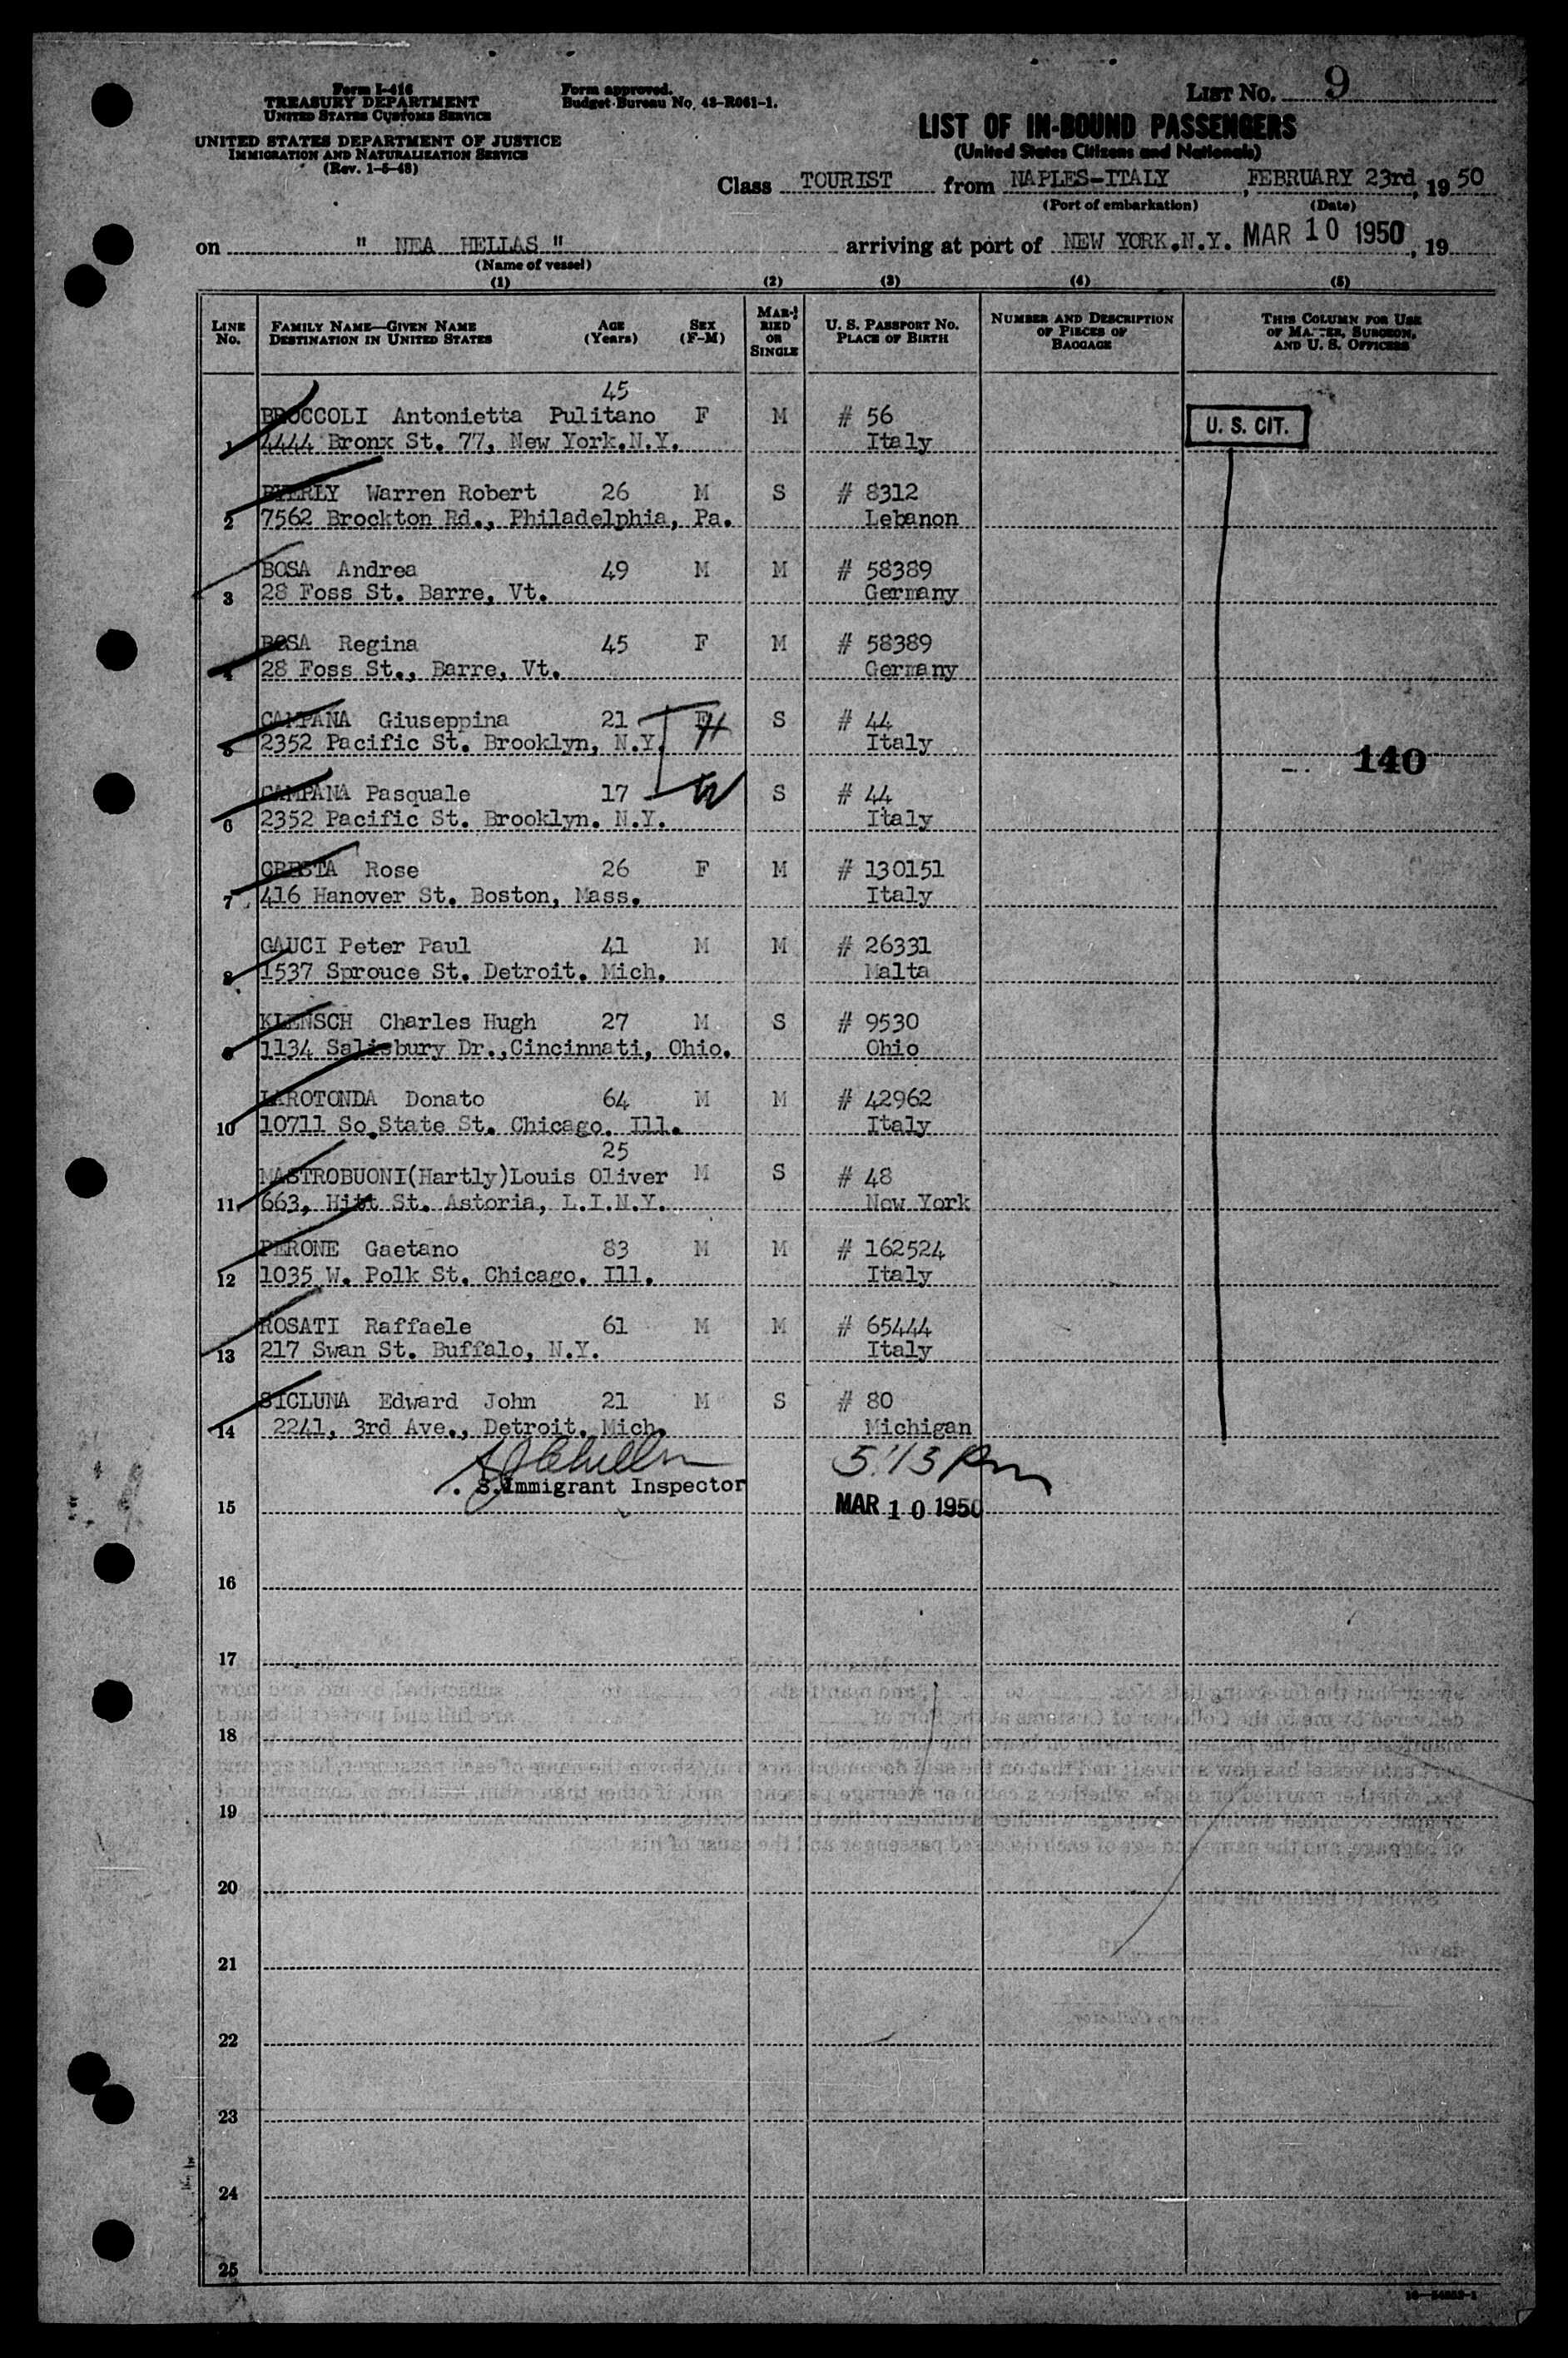 Form I-416
TREASURY DEPARTMENT
UNITED STATES CUSTOMS SERVICE
UNITED STATES DEPARTMENT OF JUSTICE
IMMIGRATION AND NATURALIZATION SERVICE
(Rev. 1-5-48)
Form approved.
Budget Bureau No. 43-R061-1.
LIST NO. 9
LIST OF IN-BOUND PASSENGERS
(United States Citizens and Nationals)
Class TOURIST from NAPLES-ITALY , FEBRUARY 23rd, 19 50
(Port of embarkation) (Date)
on " NEA HELLAS " arriving at port of NEW YORK.N.Y. MAR 10 1950, 19
(Name of vessel)
(1) (2) (3) (4) (5)
LINE No. FAMILY NAME—GIVEN NAME DESTINATION IN UNITED STATES AGE (Years) SEX (F-M) MARRIED OR SINGLE U. S. PASSPORT NO. PLACE OF BIRTH NUMBER AND DESCRIPTION OF PIECES OF BAGGAGE THIS COLUMN FOR USE OF MASTER, SURGEON, AND U. S. OFFICERS
45
BROCCOLI Antonietta Pulitano F M # 56
1 4444 Bronx St. 77, New York.N.Y. Italy
U. S. CIT.
BYERLY Warren Robert 26 M S # 8312
2 7562 Brockton Rd., Philadelphia, Pa. Lebanon
BOSA Andrea 49 M M # 58389
3 28 Foss St. Barre, Vt. Germany
BOSA Regina 45 F M # 58389
4 28 Foss St., Barre, Vt. Germany
CAMPANA Giuseppina 21 F H S # 44
5 2352 Pacific St. Brooklyn, N.Y. Italy
140
CAMPANA Pasquale 17 W S # 44
6 2352 Pacific St. Brooklyn. N.Y. Italy
CRESTA Rose 26 F M # 130151
7 416 Hanover St. Boston, Mass. Italy
GAUCI Peter Paul 41 M M # 26331
8 1537 Sprouce St. Detroit. Mich. Malta
KLENSCH Charles Hugh 27 M S # 9530
9 1134 Salisbury Dr.,Cincinnati, Ohio. Ohio
LAROTONDA Donato 64 M M # 42962
10 10711 So.State St. Chicago. Ill. Italy
25
MASTROBUONI(Hartly)Louis Oliver M S # 48
11 663, Hitt St. Astoria, L.I.N.Y. New York
PERONE Gaetano 83 M M # 162524
12 1035 W. Polk St. Chicago. Ill. Italy
ROSATI Raffaele 61 M M # 65444
13 217 Swan St. Buffalo, N.Y. Italy
SICLUNA Edward John 21 M S # 80
14 2241, 3rd Ave., Detroit. Mich. Michigan
5:13 Pm
. S. Immigrant Inspector
15 MAR 10 1950
16
17
18
19
20
21
22
23
24
25